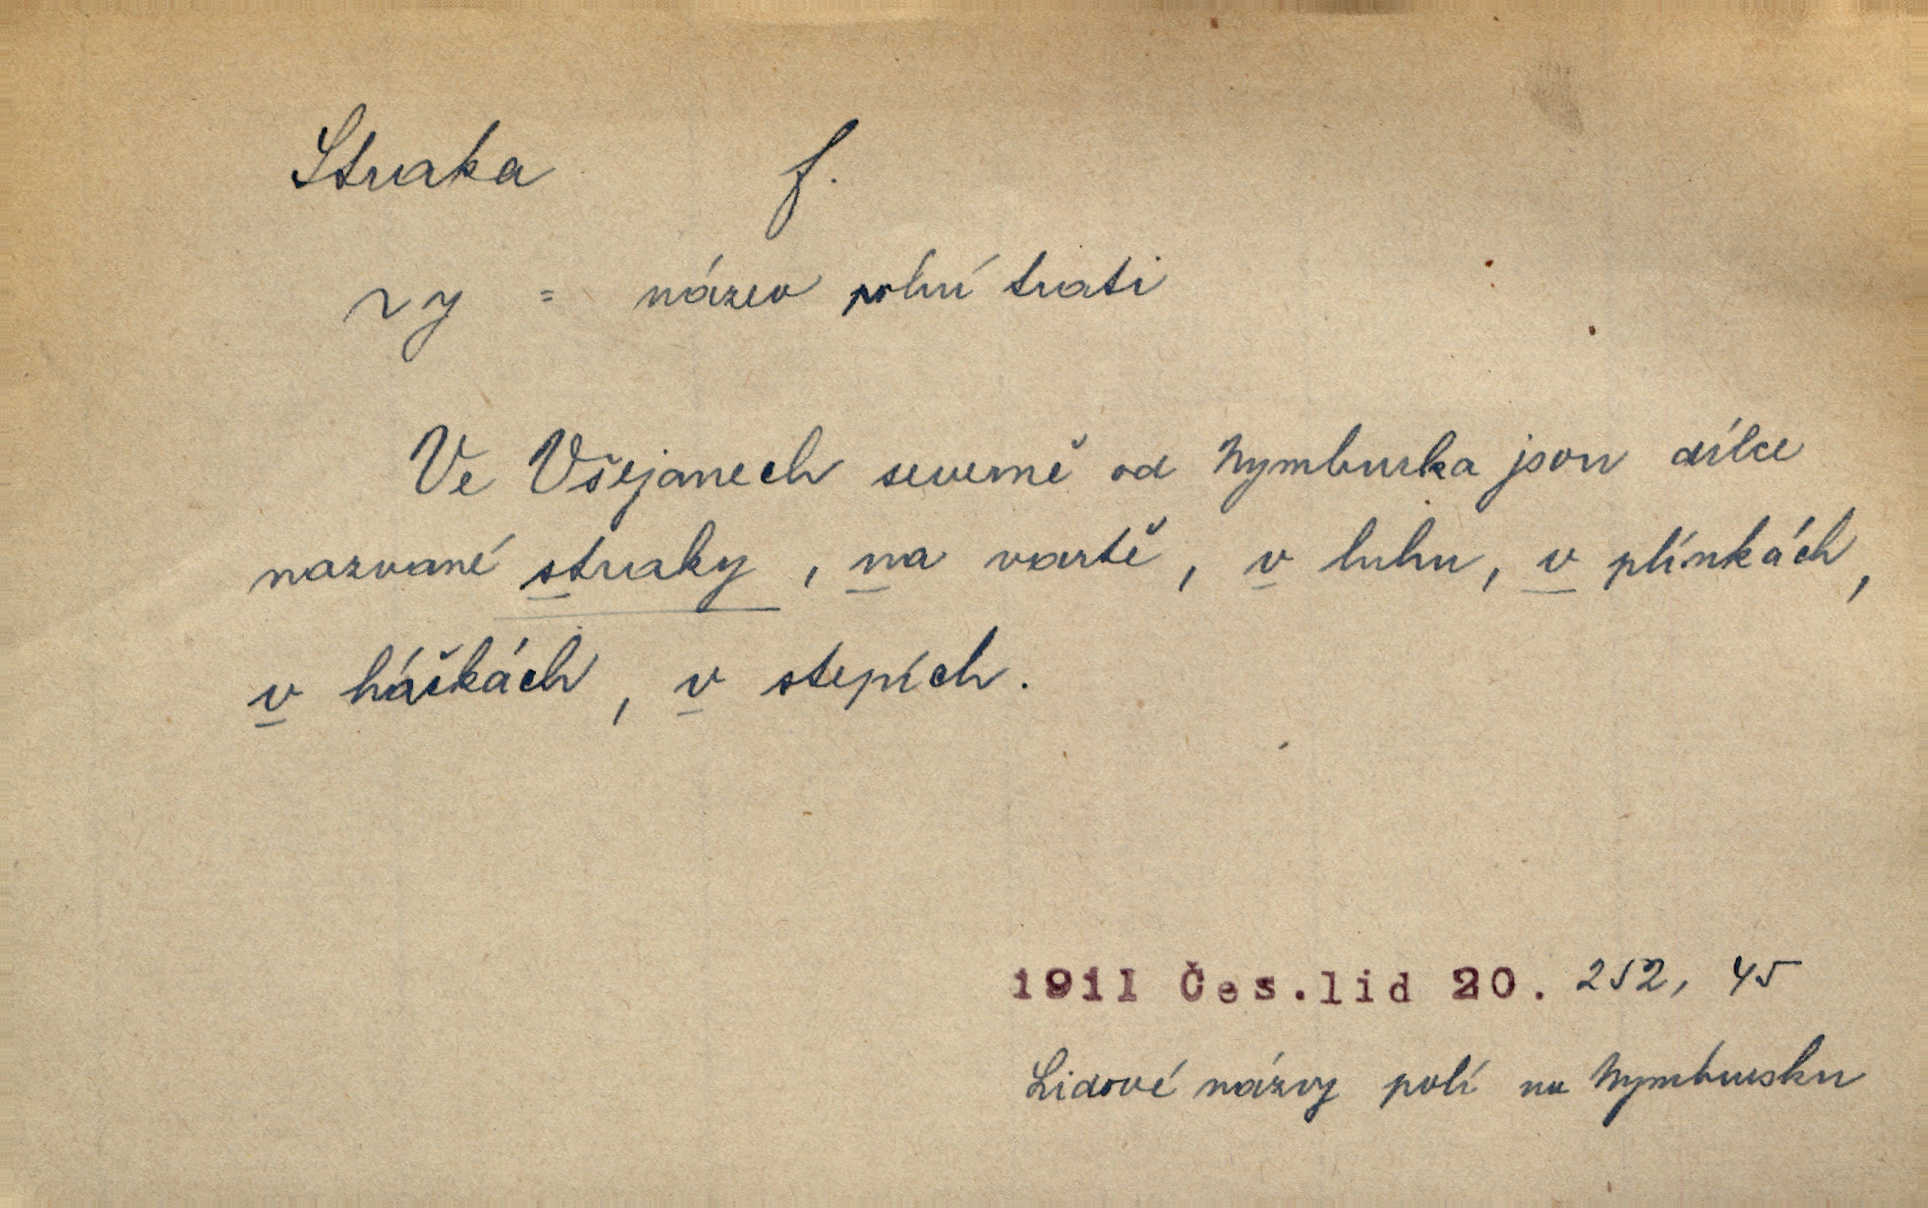 Straka f.
~y = název polní trati
Ve Všejanech severně od Nymburka jsou dílce
nazvané straky, na vartě, v luhu, v plínkách,
v háčkách, v stepích.
1911 Čes.lid 20. 252, 45
Lidové názvy polí na Nymbursku